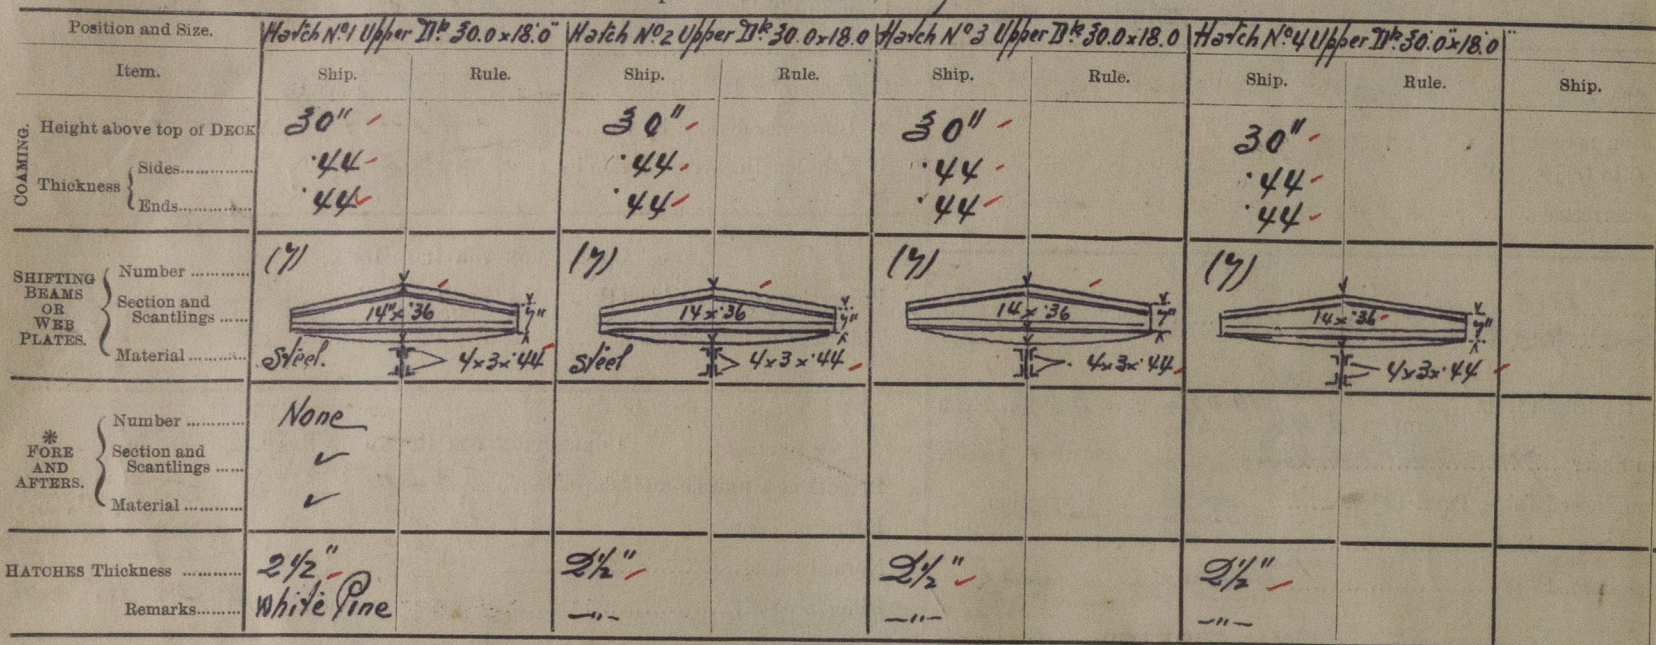 Position and Size. Hatch No.1 Upper Dk. 30.0 x 18.0" Hatch No.2 Upper Dk. 30.0 x 18.0 Hatch No 3 Upper Dk. 30.0 x 18.0 Hatch No.4 Upper Dk. 30.0 x 18.0"
Item. Ship. Rule. Ship. Rule. Ship. Rule. Ship. Rule. Ship.
COAMING.
Height above top of DECK 30" 30" 30" 30"
Thickness { Sides............... ·44 ·44 ·44 ·44
Ends............... ·44 ·44 ·44 ·44
SHIFTING BEAMS OR WEB PLATES.
Number ........... (7) (7) (7) (7)
Section and Scantlings ...... 14" x ·36 7" 14 x ·36 7" 14 x ·36 7" 14 x ·36 7"
Material ........... Steel. 4 x 3 x ·44 Steel 4 x 3 x ·44 4 x 3 x ·44 4 x 3 x ·44
* FORE AND AFTERS.
Number ........... None
Section and Scantlings ...... ✓
Material ............ ✓
HATCHES Thickness ............ 2 1/2" 2 1/2" 2 1/2" 2 1/2"
Remarks......... White Pine —"— —"— —"—